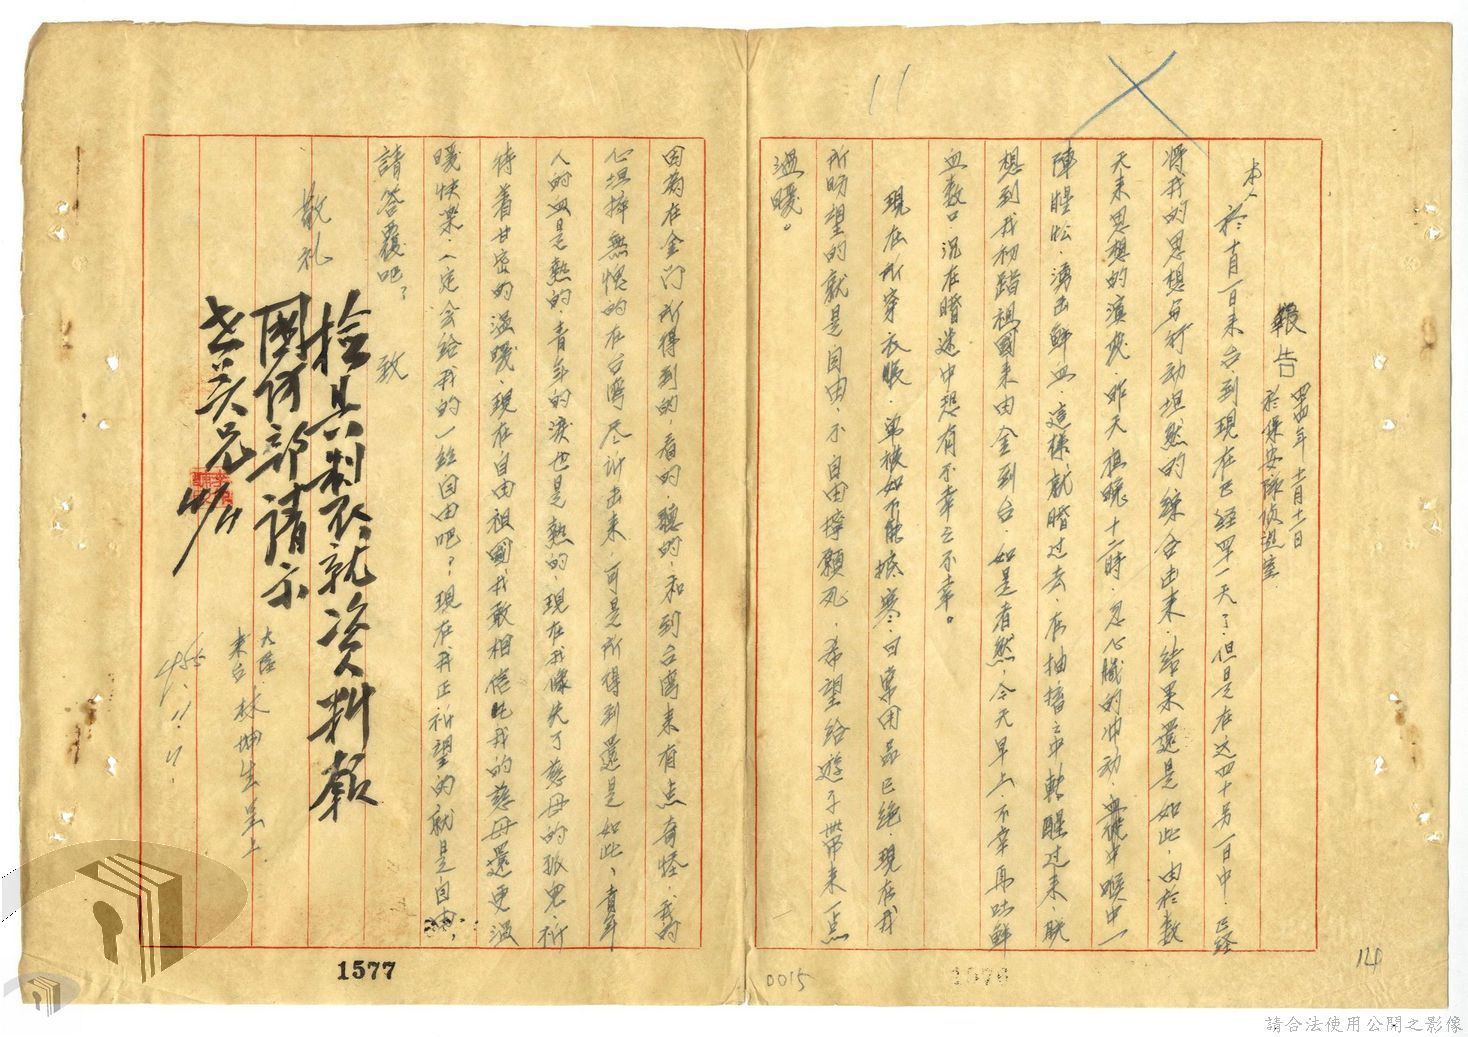 報告 四四年十一月十一日
於保安隊偵迅室
本人於十月一日来台,到現在已經四十一天了,但是在这四十另一日中,已經
将我的思想与行动坦然的綜合出来,結果還是如此,由於数
天来思想的演变,昨天夜晚十二時,忍心臟的冲动,由喉中一
陣腥忪,湧出鮮血,這樣就暗过去,在抽搐之中転醒过来,脱
想到我初踏祖國来由金到台,如是者然,今天早上,不幸再吐鮮
血数口,沉在暗迷中想有不幸之不幸。
現在所穿衣服,單被如不能抵寒,日常用品已絶,現在我
所盼望的就是自由,不自由擰願死,希望給遊子带来一点
温暖。
因為在金门所得到的,看的,聽的,和到台灣来有点奇怪,我的
心坦摔無愧的在台灣尽訴出来,可是所得到還是如此,青年
人的血是熱的,青年的淚也是熱的,現在我像失了慈母的孤児,祈
待着甘密的温暖,現在自由祖國,我敢相信比我的慈母還更温
暖快楽,一定会给我的一丝自由吧?現在我正祈望的就是自由,
請答覆吧? 致
敬礼
大陸
来台 林坤生呈上
1955.11.11.
檢具制不就資料報
國防部請示
老吳兄
4/11
11
14
0015
1576
1577
請合法使用公開之影像